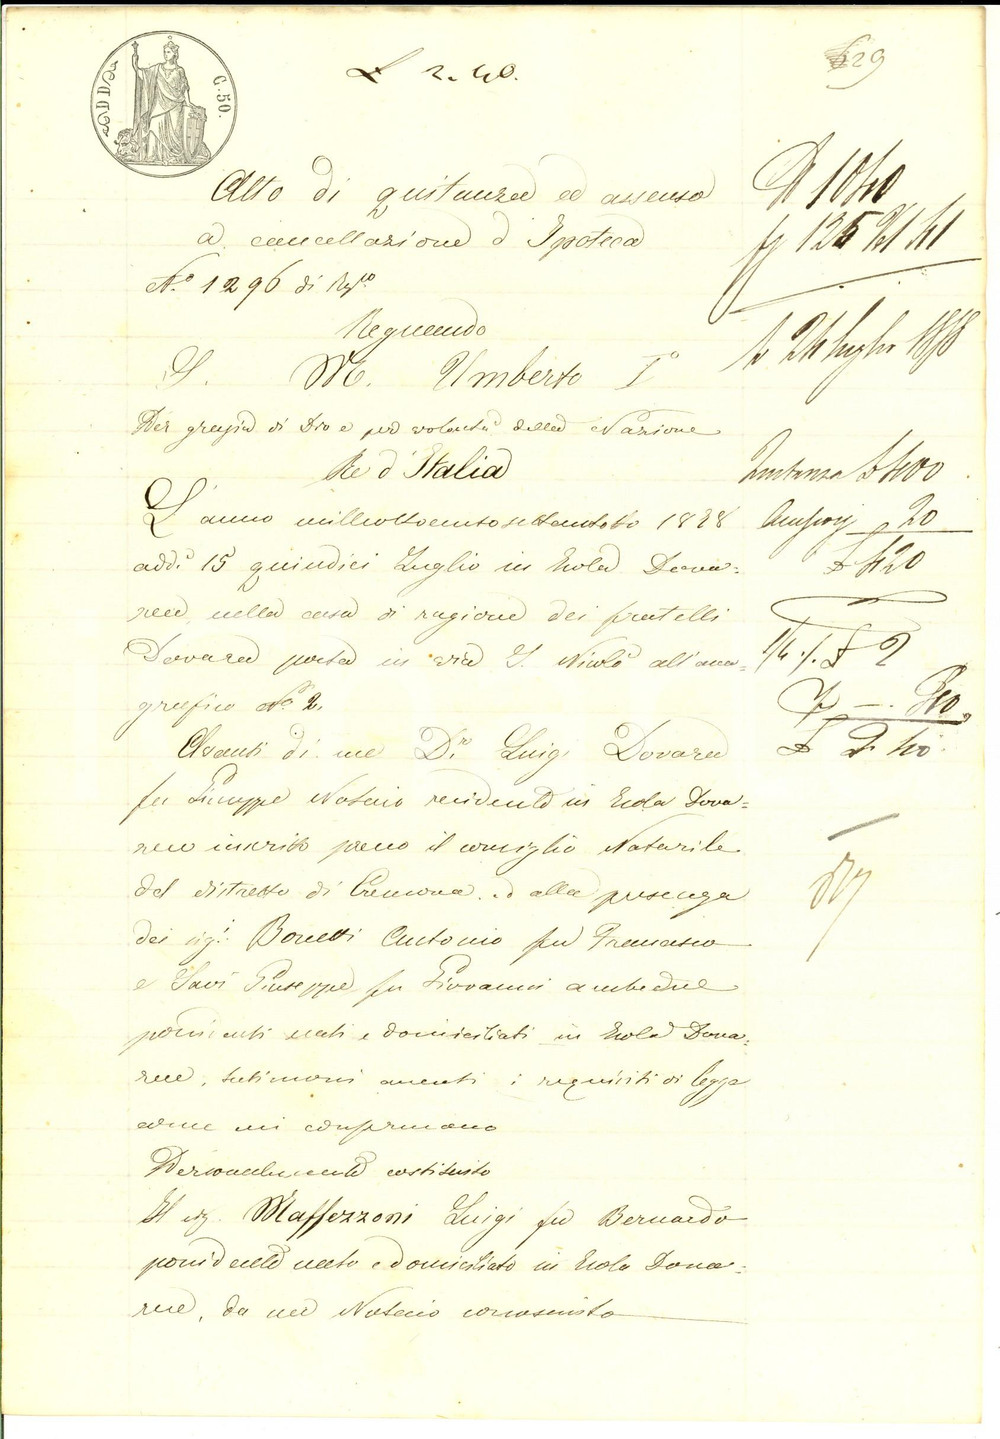 C. 50.
£ 2. 40.
29
Atto di quitanza ed assenso
a cancellazione d'Ipoteca
N.° 1296 di Rep.rio
Regnando
S. M. Umberto I°
Per grazia di Dio e per volontà della Nazione
Re d'Italia
L'anno milleottocentosettantotto 1878
addì 15 quindici Luglio in Isola Dova=
rese, nella casa di ragione dei fratelli
Dovara posta in via S. Nicolò all'ana=
grafico N.° 2.
Avanti di me D.r Luigi Dovara
fu Giuseppe Notaio residente in Isola Dova=
rese inscritto presso il consiglio Notarile
del distretto di Cremona ed alla presenza
dei sig.i Bonetti Antonio fu Francesco
e Savi Giuseppe fu Giovanni ambedue
possidenti nati e domiciliati in Isola Dova=
rese, testimoni aventi i requisiti di legge
come mi confermano
Personalmente costituito
Il sig. Maffezzoni Luigi fu Bernardo
possidente nato e domiciliato in Isola Dova=
rese, da me Notaio conosciuto
N 1040
fg 125 Vol 41
24 luglio 1878
Quitanza £ 400
Accessorj 20
£ 420
£ 2
40
£ 2. 40.